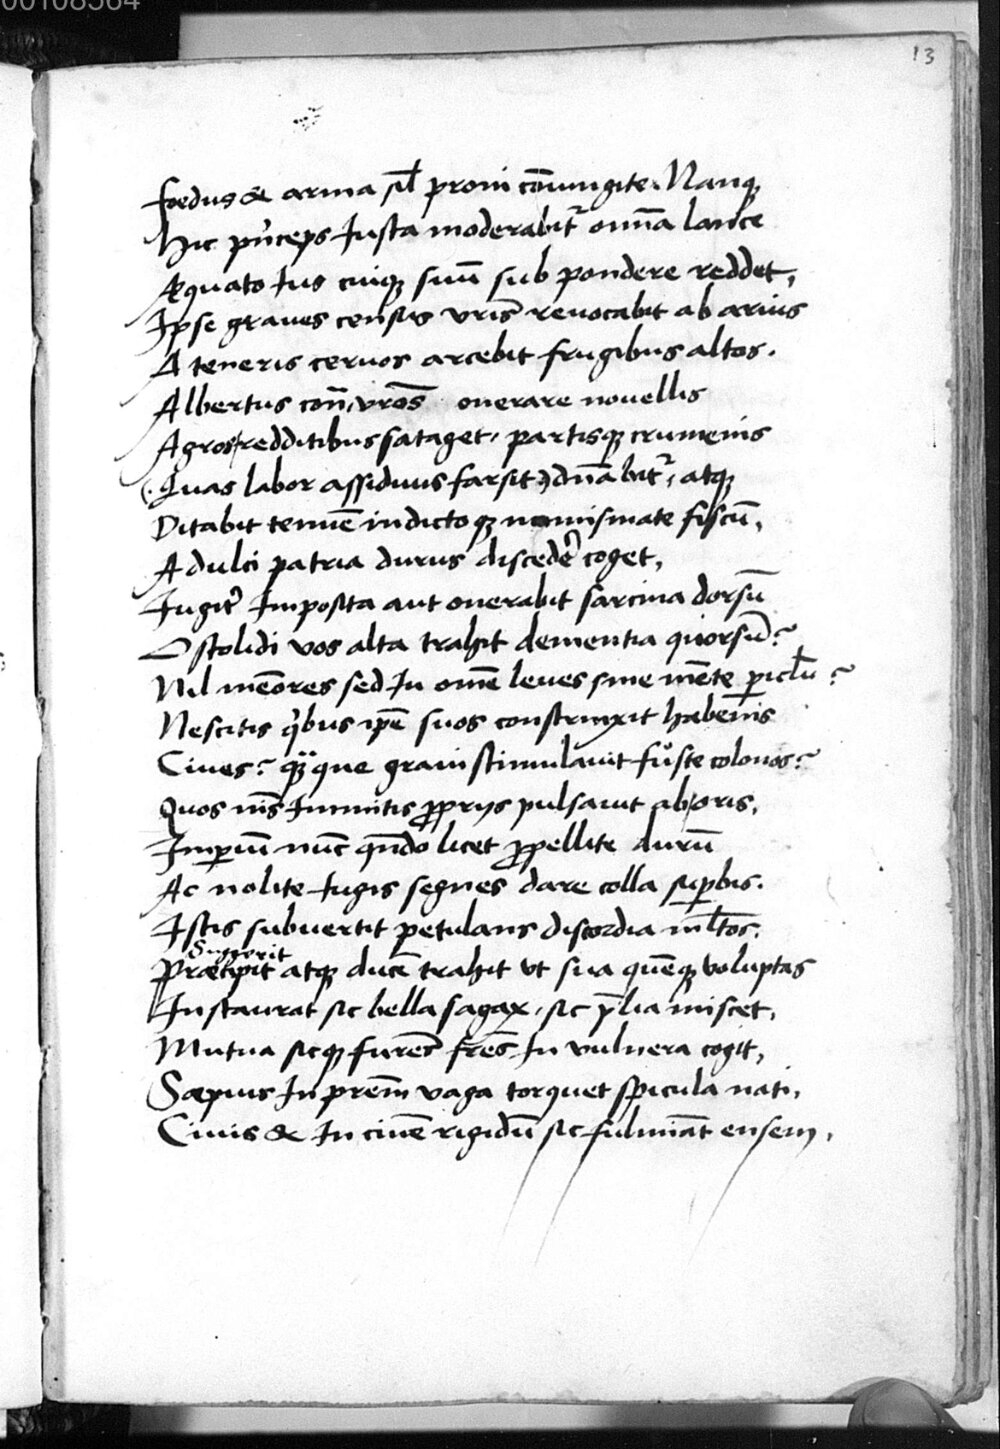 00108564
13
foedus & arma sil̄ proni cōiungite. Nanqꝫ
Hic pn̄ceps Iusta moderabit᷑ omīa lance
Æquato Ius cuiqꝫ suū sub pondere reddet,
Ipse graues census vr̄is reuocabit ab aruis
A teneris ceruos arcebit frugibus altos.
Albertus con̄, vr̄os onerare nouellis
Agros redditibus sataget, partisqꝫ crumenis
(Quas labor assiduus farsit) dn̄abit᷑, atqꝫ
Ditabit tenuē indictoqꝫ nomismate fiscū,
A dulci patria durus discedēr coget,
Iugit᷑ Imposita aut onerabit sarcina dorsū
O stolidi vos alta trahit dementia quorsū?
Nil memōres sed In omē leues sine mēte ꝑiclū?
Nescitis qͥbus ip̄e suos constrinxit habenis
Ciues? quāque graui stimulauit fuste colonos?
Quos nīs Inmitis ꝓprijs pulsauit ab oris,
Imꝑiū nūc qn̄do licet ꝓpellite durū
Ac nolite Iugis segnes dare colla suꝑbis.
Istis subuertit petulans discordia ml̄tos.
Suggerit
Præcipit atqꝫ ducē trahit vt sua quēqꝫ voluptas
Instaurat sic bella sagax, sic p̄lia miscet,
Mutua sicqꝫ furēs fr̄es In vulnera cogit,
Sæpius In prem̄ vaga torquet spicula nati,
Ciuis & In ciuē rigidū sic fulmināt ensem,